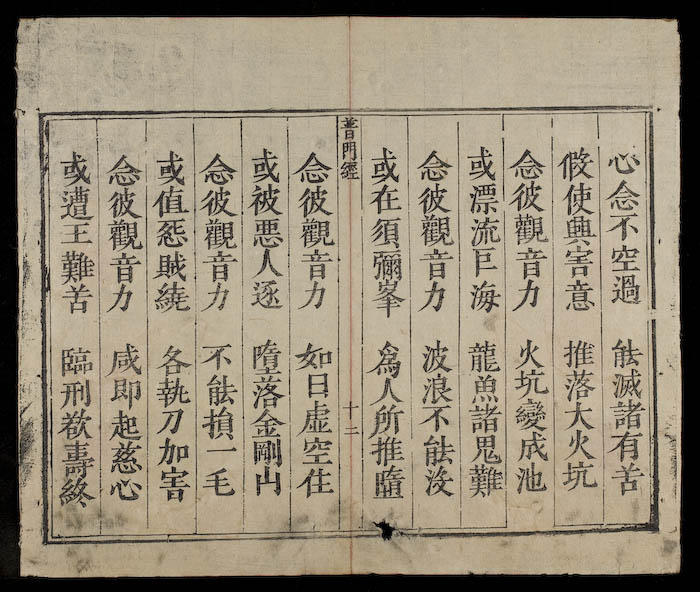 心念不空過　能滅諸有苦
假使興害意　推落大火坑
念彼觀音力　火坑變成池
或漂流巨海　龍魚諸鬼難
念彼觀音力　波浪不能沒
或在須彌峯　為人所推墮
普門經　十二
念彼觀音力　如日虛空住
或被惡人逐　墮落金剛山
念彼觀音力　不能損一毛
或值怨賊繞　各執刀加害
念彼觀音力　咸即起慈心
或遭王難苦　臨刑欲壽終